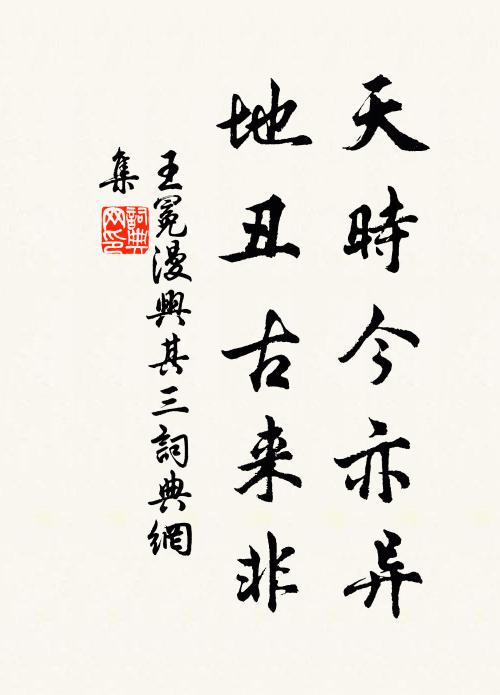 天時今亦异
地丑古来非
王冕漫興其三詞典網
集
詞典
网印